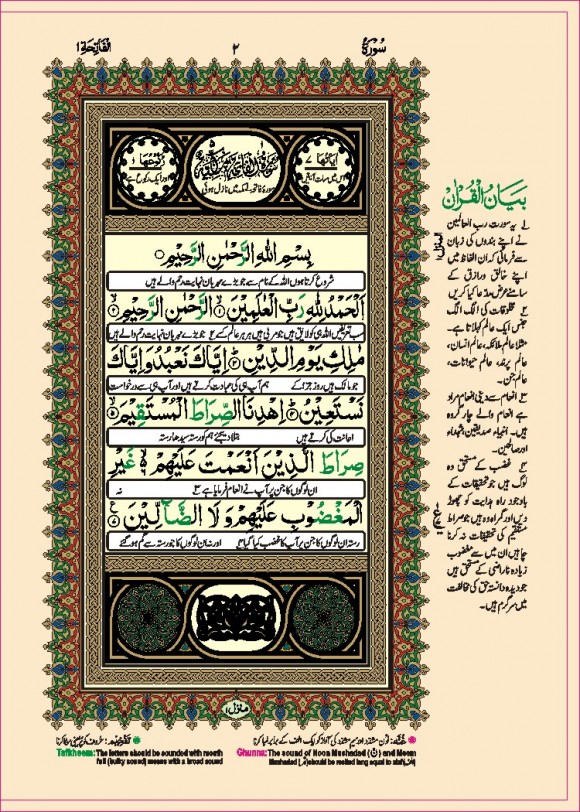 سُوْرَةُ ٢ اَلْفَاتِحَة ١
اٰيَاتُهَا ٧
اس میں سات آیتیں
سورۃ فاتحہ مکہ میں نازل ہوئی
رُكُوْعُهَا
اور ایک رکوع ہے
بِسْمِ اللّٰهِ الرَّحْمٰنِ الرَّحِيْمِ
شروع کرتا ہوں اللہ کے نام سے جو بڑے مہربان نہایت رحم والے ہیں
اَلْحَمْدُ لِلّٰهِ رَبِّ الْعٰلَمِيْنَ ۙ﴿۱﴾ الرَّحْمٰنِ الرَّحِيْمِ ۙ﴿۲﴾
سب تعریفیں اللہ ہی کو لائق ہیں جو مربی ہیں ہر ہر عالم کے ۲ جو بڑے مہربان نہایت رحم والے ہیں
مٰلِكِ يَوْمِ الدِّيْنِ ؕ﴿۳﴾ اِيَّاكَ نَعْبُدُ وَ اِيَّاكَ
جو مالک ہیں روز جزا کے ہم آپ ہی کی عبادت کرتے ہیں اور آپ ہی سے درخواست
نَسْتَعِيْنُ ؕ﴿۴﴾ اِهْدِنَا الصِّرَاطَ الْمُسْتَقِيْمَ ۙ﴿۵﴾
اعانت کی کرتے ہیں بتلا دیجئے ہم کو رستہ سیدھا رستہ
صِرَاطَ الَّذِيْنَ اَنْعَمْتَ عَلَيْهِمْ ۙ۬ۦ﴿۶﴾ غَيْرِ
ان لوگوں کا جن پر آپ نے انعام فرمایا ہے ۳ نہ
الْمَغْضُوْبِ عَلَيْهِمْ وَ لَا الضَّآلِّيْنَ ﴿۷﴾
رستہ ان لوگوں کا جن پر آپ کا غضب کیا گیا ۴ اور نہ ان لوگوں کا جو رستہ سے گم ہو گئے
منزل ۱
بَيَانُ الْقُرْاٰن
المنزل ۱
۱ یہ سورت رب العالمین
نے اپنے بندوں کی زبان
سے فرمائی کہ ان الفاظ میں
اپنے خالق و رازق کے
سامنے عرض مدعا کیا کریں
۲ مخلوقات کی الگ الگ
جنس ایک عالم کہلاتا ہے۔
مثلا عالم ملائکہ، عالم انسان،
عالم پرند، عالم حیوانات،
عالم جن۔
۳ انعام سے دینی انعام مراد
ہے انعام والے چار گروہ
ہیں۔ انبیاء صدیقین شہداء
اور صالحین۔
۴ غضب کے مستحق وہ
لوگ ہیں جو تحقیقات کے
باوجود راہ ہدایت کو چھوڑ
دیں اور گمراہ وہ ہیں جو صراط
مستقیم کی تحقیقات نہ کرنا
چاہیں ان میں سے مغضوب
زیادہ ناراضی کے مستحق ہیں
جو دیدہ دانستہ حق کی مخالفت
میں سرگرم ہیں۔
غُنّہ: نون مشدد اور میم مشدد کی آواز کو ایک الف کے برابر لمبا کرنا
Ghunna: The sound of Noon Mushadad (نّ) and Meem
Mushadad (مّ) should be recited long equal to alaf
تفخیم: حروف کو پُر یعنی موٹا کرنا
Tafkheem: The letters should be sounded with mouth
full (bulky sound) means with a broad sound